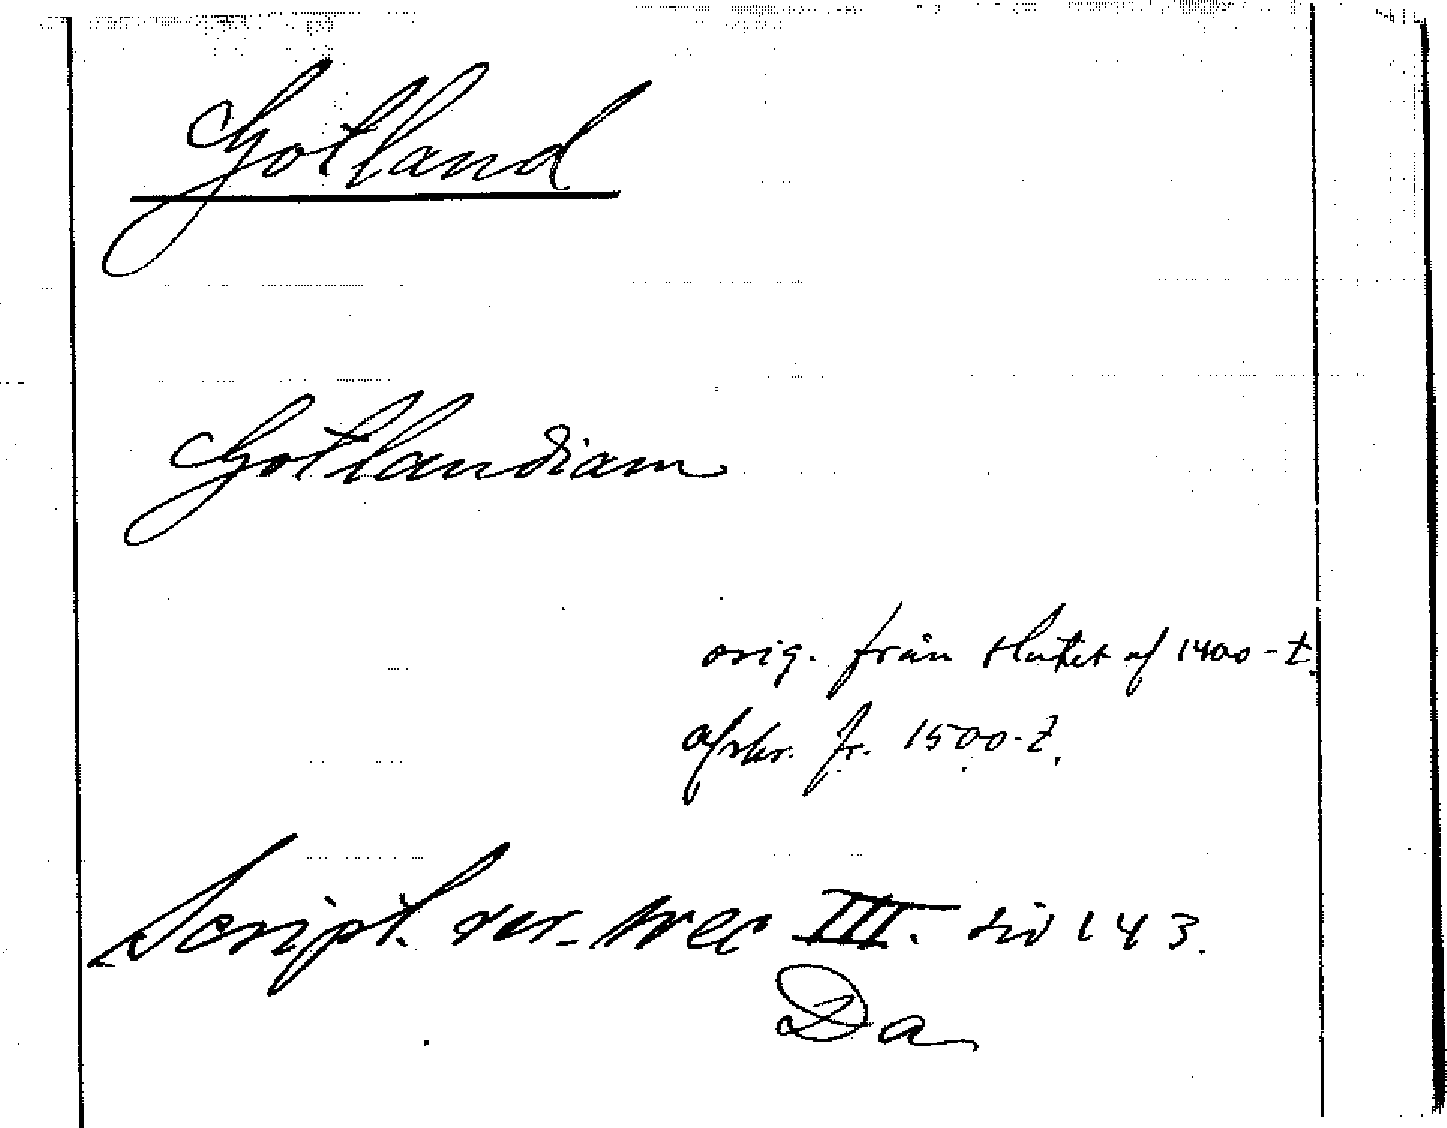 Gotland
Gotlandiam
orig. från slutet af 1400-t.
afskr. fr. 1500-t.
Script. rer. svec III. sid 143.
Da